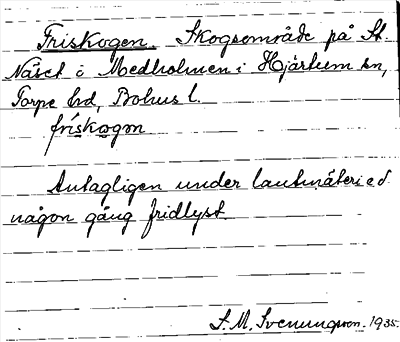 Friskogen. Skogsområde på St.
Näset i Medholmen i Hjärtum sn,
Torpe hd, Bohus l.
friskogən
Antagligen under lantmäteri ed
någon gång fridlyst.
S. M. Svenungsson. 1935.